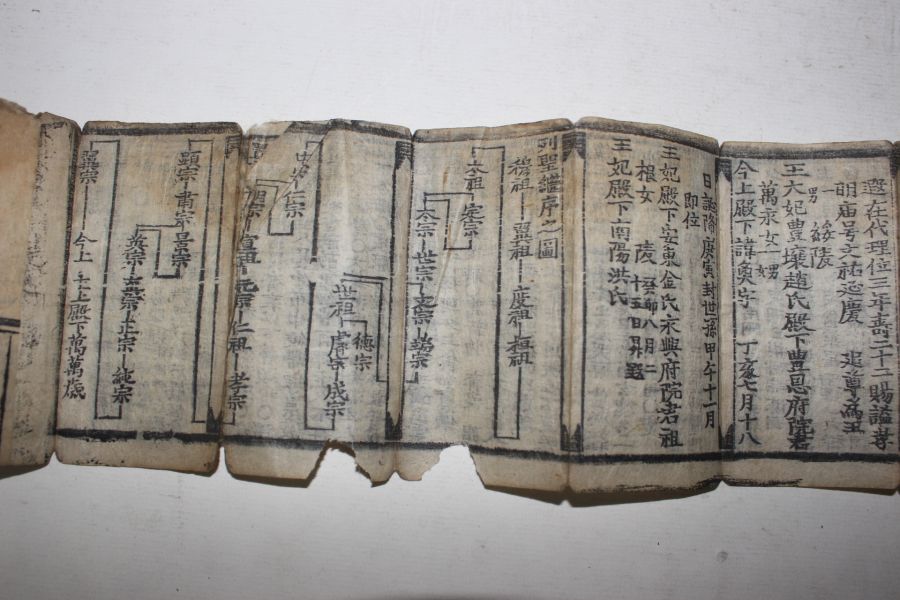 遊在代理位三年壽二十二賜謚孝
明廟号文祐延慶 追尊為王
男一 綏陵
王大妃豊壤趙氏殿下豊恩府院君
萬永女
今上殿下諱奐字 丁亥七月十八
日誕降庚寅封世孫甲午十一月
即位
王妃殿下安東金氏永興府院君祖
根女 陵 癸卯八月二
十五日昇遐
王妃殿下南陽洪氏
列聖繼序之圖
穆祖 翼祖 度祖 桓祖
太祖 定宗
太宗 世宗 文宗 端宗
德宗
世祖 睿宗 成宗
中宗 仁宗
宣祖 元宗 仁祖 孝宗
顯宗 肅宗 景宗
英宗 真宗 正宗 純宗
翼宗
今上 主上殿下萬萬歲